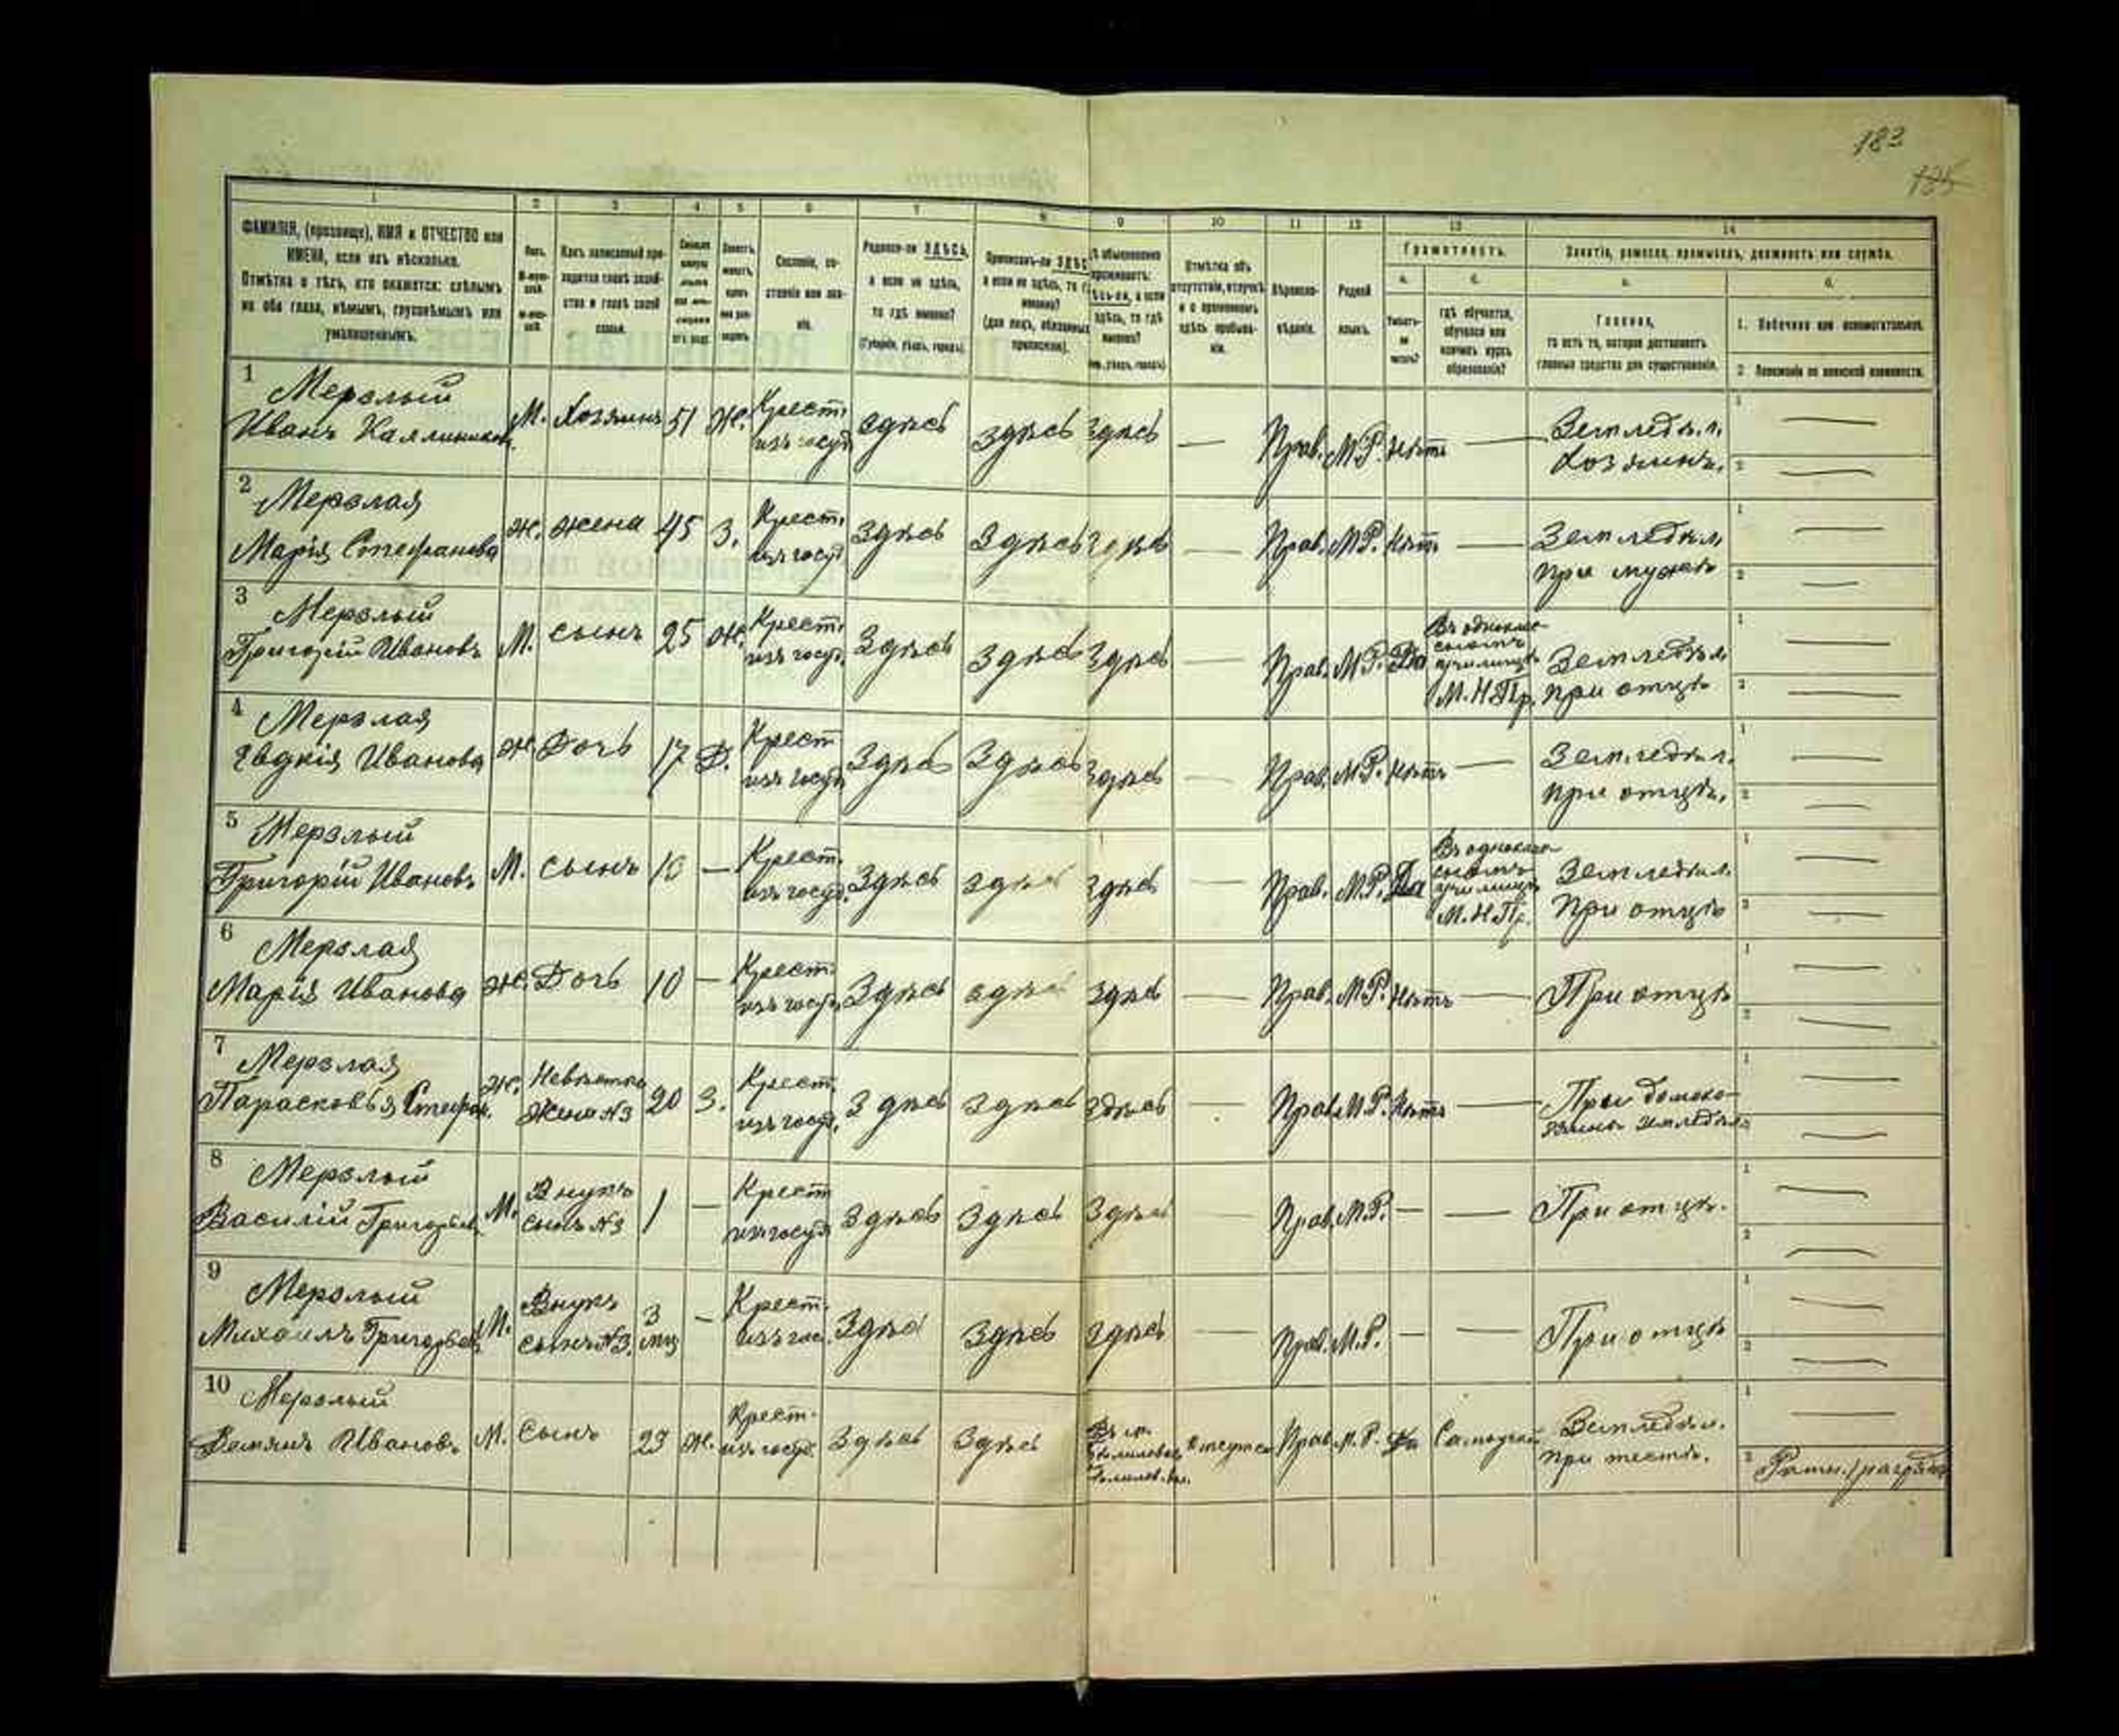 183
185
1 2 3 4 5 6 7 8 9 10 11 12 13 14
ФАМИЛІЯ, (прозвище), ИМЯ и ОТЧЕСТВО или
ИМЕНА, если ихъ нѣсколько.
Отмѣтка о тѣхъ, кто окажется: слѣпымъ
на оба глаза, нѣмымъ, глухонѣмымъ или
умалишеннымъ.
Полъ.
Какъ записанный при-
ходится главѣ хозяй-
ства и главѣ своей
семьи.
Сословіе, со-
стояніе или зва-
ніе.
Родился-ли ЗДѢСЬ,
а если не здѣсь,
то гдѣ именно?
(Губернія, уѣздъ, городъ).
Приписанъ-ли ЗДѢСЬ
а если не здѣсь, то гдѣ
именно?
(для лицъ, обязанныхъ
припискою).
Отмѣтка объ
отсутствіи, отлучкѣ
и о временномъ
здѣсь пребыва-
ніи.
Вѣроиспо-
вѣданіе.
Родной
языкъ.
Грамотность.
а.
Умѣетъ-
ли
читать?
б.
гдѣ обучается,
обучался или
кончилъ курсъ
образованія?
Занятіе, ремесло, промыселъ, должность или служба.
а.
Главное,
то есть то, которое доставляетъ
главныя средства для существованія.
б.
1. Побочное или вспомогательное.
2. Положеніе по воинской повинности.
1 Мерзлый
Иванъ Каллиников. М. Хозяинъ 51 Ж. Крест. изъ госуд. здѣсь здѣсь здѣсь — Прав. М.Р. Нѣтъ — Земледѣл. Хозяинъ. 1 — 2 —
2 Мерзлая
Марія Стефанова ж. жена 45 З. Крест. изъ госуд. Здѣсь Здѣсь Здѣсь — Прав. М.Р. Нѣтъ — Земледѣл. при мужѣ 1 — 2 —
3 Мерзлый
Григорій Ивановъ М. сынъ 25 Ж. Крест. изъ госуд. Здѣсь Здѣсь Здѣсь — Прав. М.Р. Да Въ однокласномъ училищѣ М.Н.Пр. Земледѣл. при отцѣ 1 — 2 —
4 Мерзлая
Евдкія Иванова Ж Дочь 17 Д. Крест изъ госуд. Здѣсь Здѣсь Здѣсь — Прав. М.Р. Нѣтъ — Земледѣл. при отцѣ. 1 — 2 —
5 Мерзлый
Григорій Ивановъ М. сынъ — Крест. изъ госуд. Здѣсь здѣсь здѣсь — Прав. М.Р. Да Въ однокласномъ училищѣ М.Н.Пр. Земледѣл. При отцѣ 1 — 2 —
6 Мерзлая
Марія Иванова ж. Дочь 10 — Крест. изъ госуд. Здѣсь здѣсь здѣсь — Прав. М.Р. Нѣтъ — При отцѣ 1 — 2 —
7 Мерзлая
Парасковья Стефан. Ж. Невѣстка жена №3 20 З. Крест. изъ госуд. Здѣсь Здѣсь Здѣсь — Прав. М.Р. Нѣтъ — При 1 — 2 —
8 Мерзлый
Василій Григорьев М. Внукъ сынъ №3 1 — Крест изъ госуд Здѣсь Здѣсь Здѣсь — Прав. М.Р. — — При отцѣ. 1 — 2 —
9 Мерзлый
Михаилъ Григорьев М. Внукъ сынъ №3. 3 мц — Крест. изъ гос. Здѣсь Здѣсь здѣсь — Прав. М.Р. — — При отцѣ 1 — 2 —
10 Мерзлый
Демянъ Ивановъ М. Сынъ 23 Ж. Крест. изъ госуд. Здѣсь Здѣсь Прав. М.Р. Да Самоучка Земледѣл. при тестѣ. 1 — 2 Ратн. 1 разряда